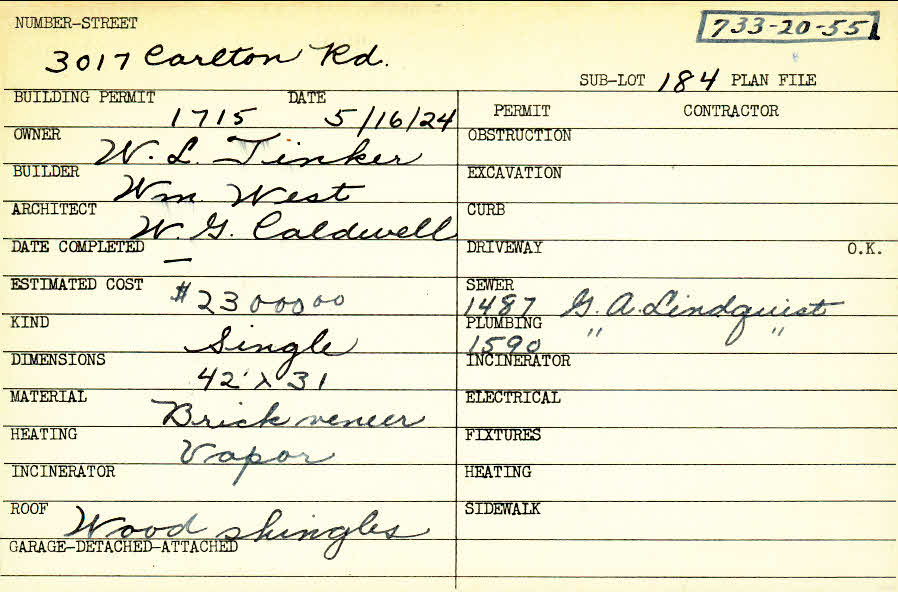 NUMBER-STREET
733-20-551
3017 Carlton Rd.
SUB-LOT 184 PLAN FILE
BUILDING PERMIT DATE
1715 5/16/24
PERMIT CONTRACTOR
OWNER W. L. Tinker
OBSTRUCTION
BUILDER Wm. West
EXCAVATION
ARCHITECT W. G. Caldwell
CURB
DATE COMPLETED —
DRIVEWAY O.K.
ESTIMATED COST $23000.00
SEWER
1487 G. A. Lindquist
KIND Single
PLUMBING
1590 " "
DIMENSIONS 42' x 31
INCINERATOR
MATERIAL Brick veneer
ELECTRICAL
HEATING Vapor
FIXTURES
INCINERATOR
HEATING
ROOF Wood shingles
SIDEWALK
GARAGE-DETACHED-ATTACHED